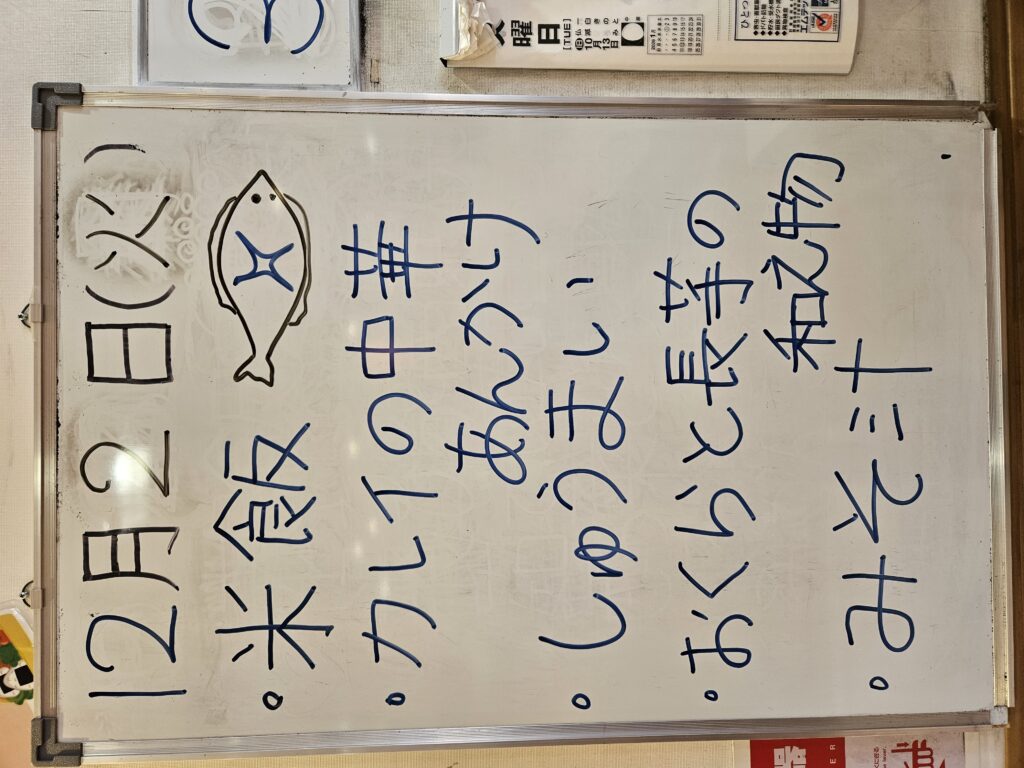 12月2日(火)
・米飯
・カレイの中華
あんかけ
・しゅうまい
・おくらと長芋の
和え物
・みそ汁
曜日
[TUE]